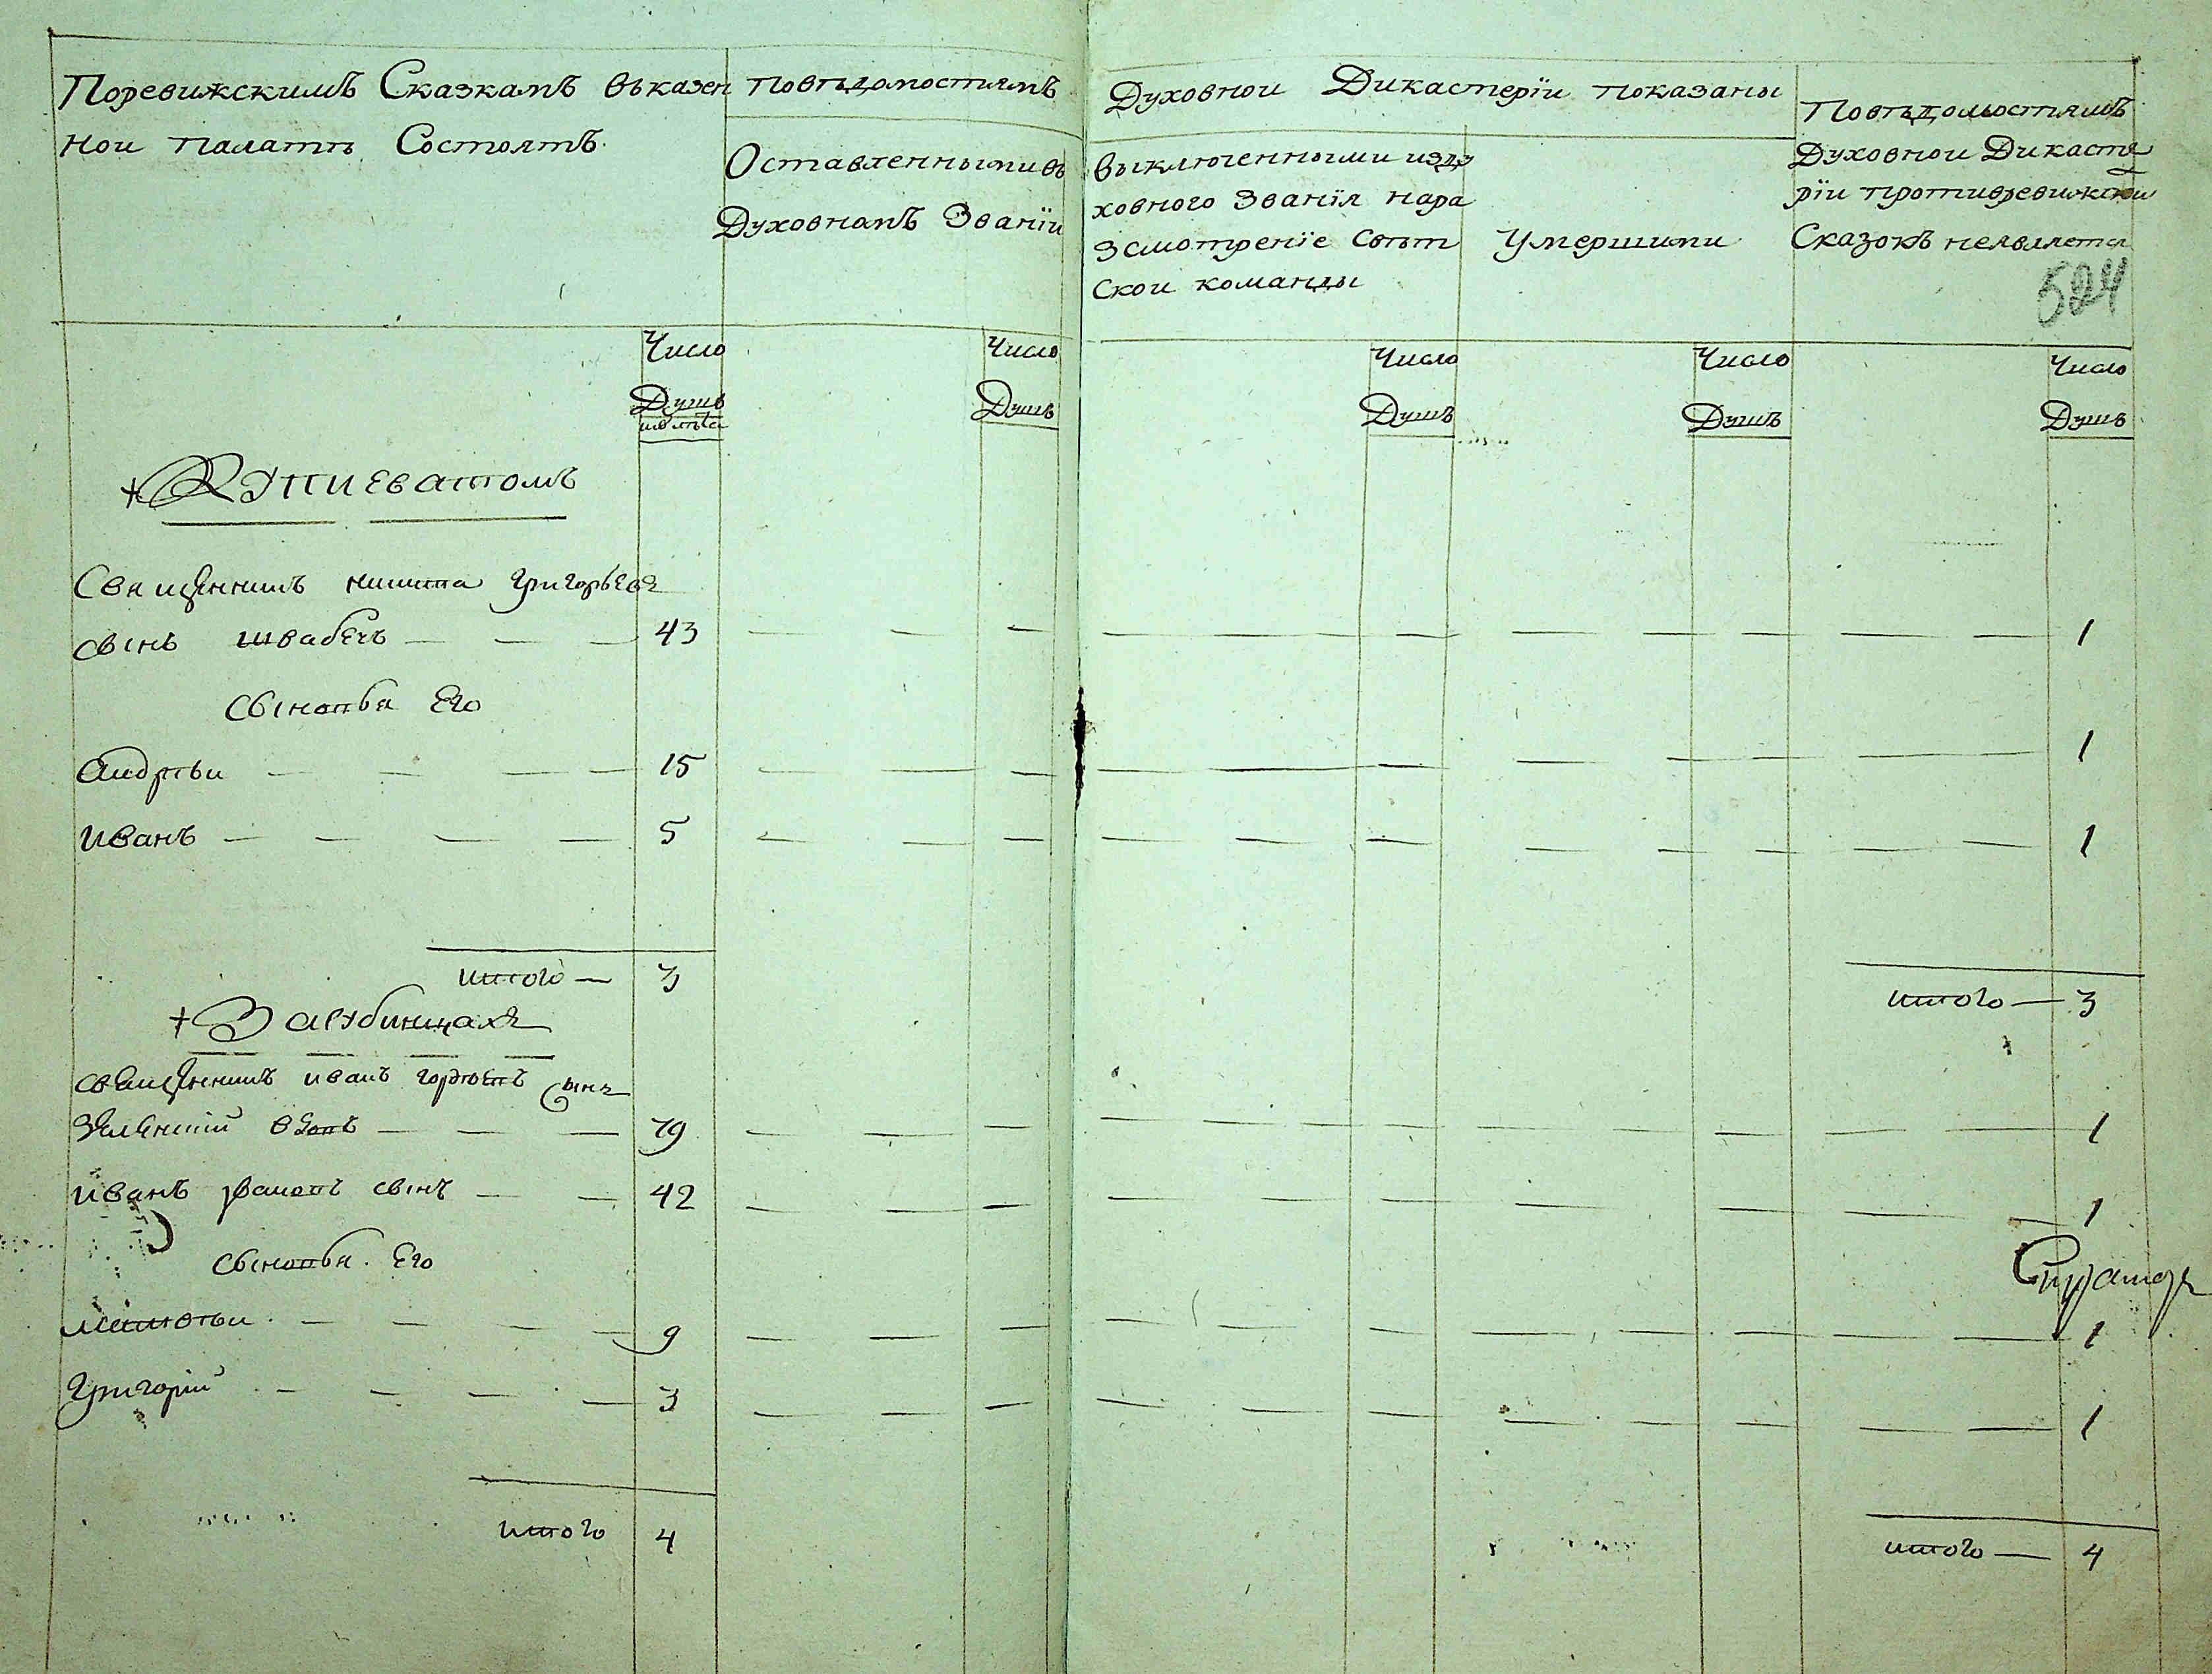 Поревижскимъ Сказкамъ вьказен
ной палатѣ Состоятъ
Повѣдомостямъ
Оставленнымивъ
Духовномъ Званїи
Духовной Дикастерїи показаны
выключенными изду
ховного Званїя нара
зсмотренїе свѣт
ской команды
Умершими
Повѣдомостямъ
Духовной Дикасте
рїи противревижских
Сказокъ неявляется
524
Число
Душъ
Число
Душъ
Число
Душъ
Число
Душъ
Число
Душъ
Священникъ никита Григорьевъ
сынъ швабечъ — — — 43 — — — — — — — — — — 1
сыновья Его
Андрѣи — — — — 15 — — — — — — — — 1
Иванъ — — — — 5 — — — — — — — — — — — 1
итого — 3
итого — 3
+ Зарубинцахъ
священникъ иванъ гордѣевъ сынъ
Зеленскїй — — — 79 — — — — — — — — — — — 1
иванъ сынъ — — 42 — — — — — — — — — — 1
сыновья Его
матвѣи — — — — 9 — — — — — — — — — — — 1
Григорїй — — — — 3 — — — — — — — — — — — 1
итого 4
итого — 4